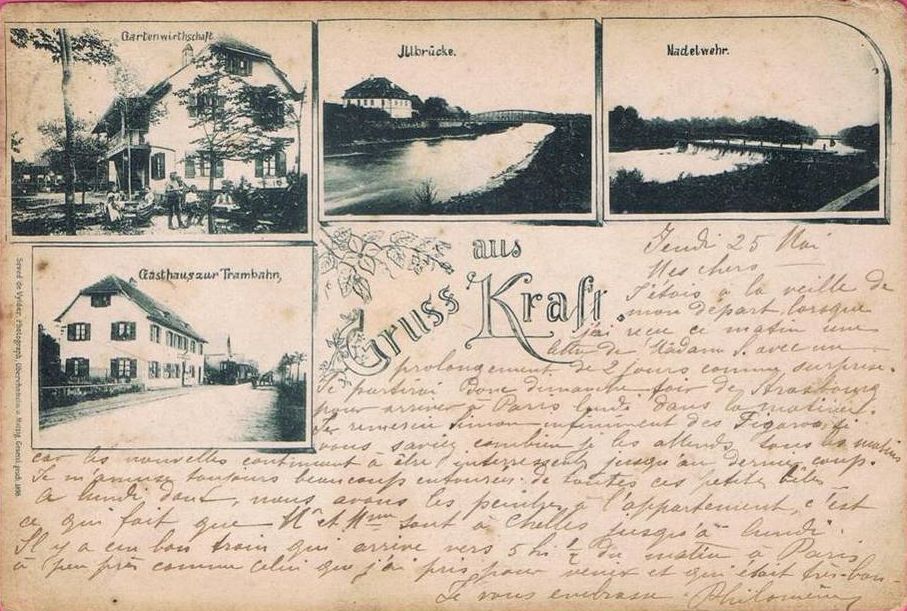 Gartenwirthschaft
Illbrücke.
Nadelwehr.
Gasthaus zur Trambahn,
Gruss aus Kraft.
Jeudi 25 Mai
Mes chers
J'étais à la veille de
mon départ, lorsque
j'ai reçu ce matin une
lettre de Madame S. avec un
prolongement de 2 jours comme surprise.
Je partirai donc dimanche soir de Strasbourg
pour arriver à Paris lundi dans la matinée.
Je remercie Simon infiniment des Figaros, si
vous saviez combien je les attends tous les matins
car les nouvelles continuent à être interressantes jusqu'au dernier coup.
Je m'amuse toujours beaucoup entourée de toutes ces petites bêtes
A lundi donc, nous avons les peintres à l'appartement, c'est
ce qui fait que Mr et Mme sont à Chelles jusqu'à lundi.
Il y a un bon train qui arrive vers 5 h ½ du matin à Paris
à peu près comme celui que j'ai pris pour venir et qui était très bon
Je vous embrasse Philomène